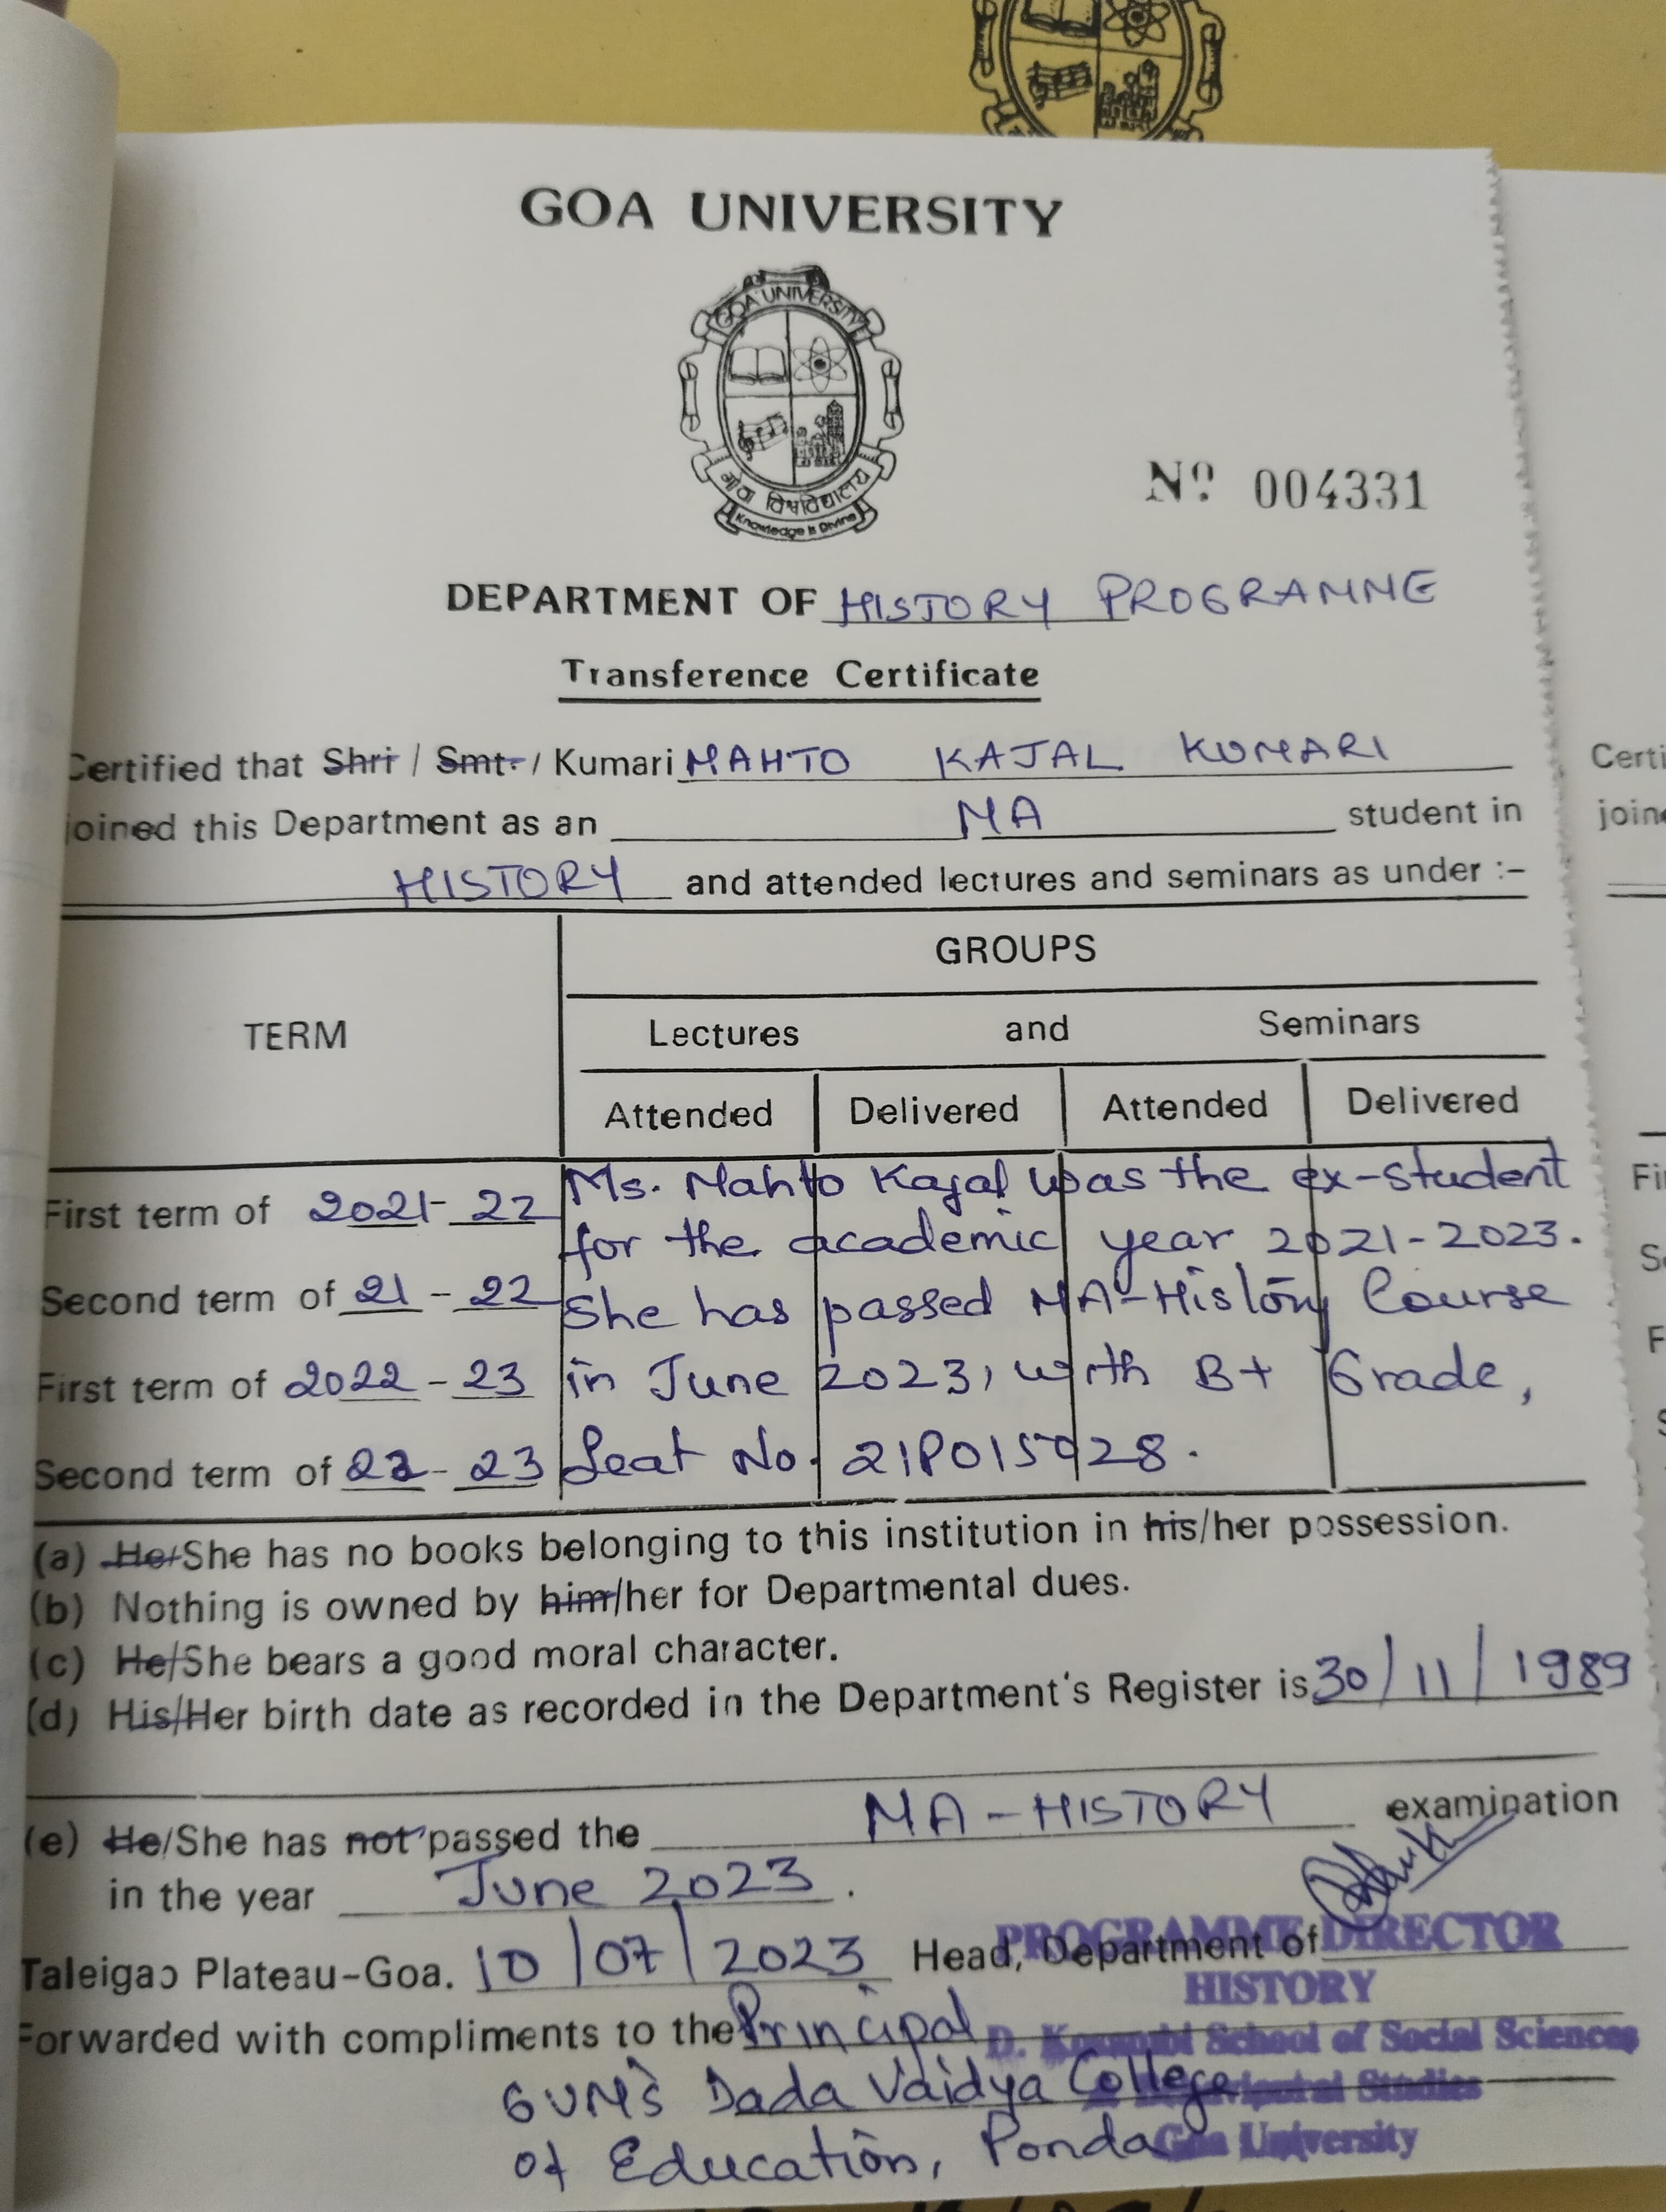 GOA UNIVERSITY
GOA UNIVERSITY
गोंय विश्वविद्यालय
Knowledge is Divine
Nº 004331
DEPARTMENT OF HISTORY PROGRAMME
Transference Certificate
Certified that Shri / Smt. / Kumari MAHTO KAJAL KUMARI
joined this Department as an MA student in
HISTORY and attended lectures and seminars as under :-
GROUPS
TERM
Lectures and Seminars
Attended Delivered Attended Delivered
First term of 2021-22 Ms. Mahto Kajal was the ex-student
for the academic year 2021-2023.
Second term of 21-22 She has passed MA-History Course
First term of 2022-23 in June 2023, with B+ Grade,
Second term of 22-23 Seat No. 21P015928.
(a) He/She has no books belonging to this institution in his/her possession.
(b) Nothing is owned by him/her for Departmental dues.
(c) He/She bears a good moral character.
(d) His/Her birth date as recorded in the Department's Register is 30/11/1989
(e) He/She has not passed the MA-HISTORY examination
in the year June 2023.
Taleigao Plateau-Goa. 10/07/2023 Head, Department of
PROGRAMME DIRECTOR
HISTORY
Forwarded with compliments to the Principal
D. Kosambi School of Social Sciences
GVM's Dada Vaidya College
Studies
of Education, Ponda
Goa University
Certi
join